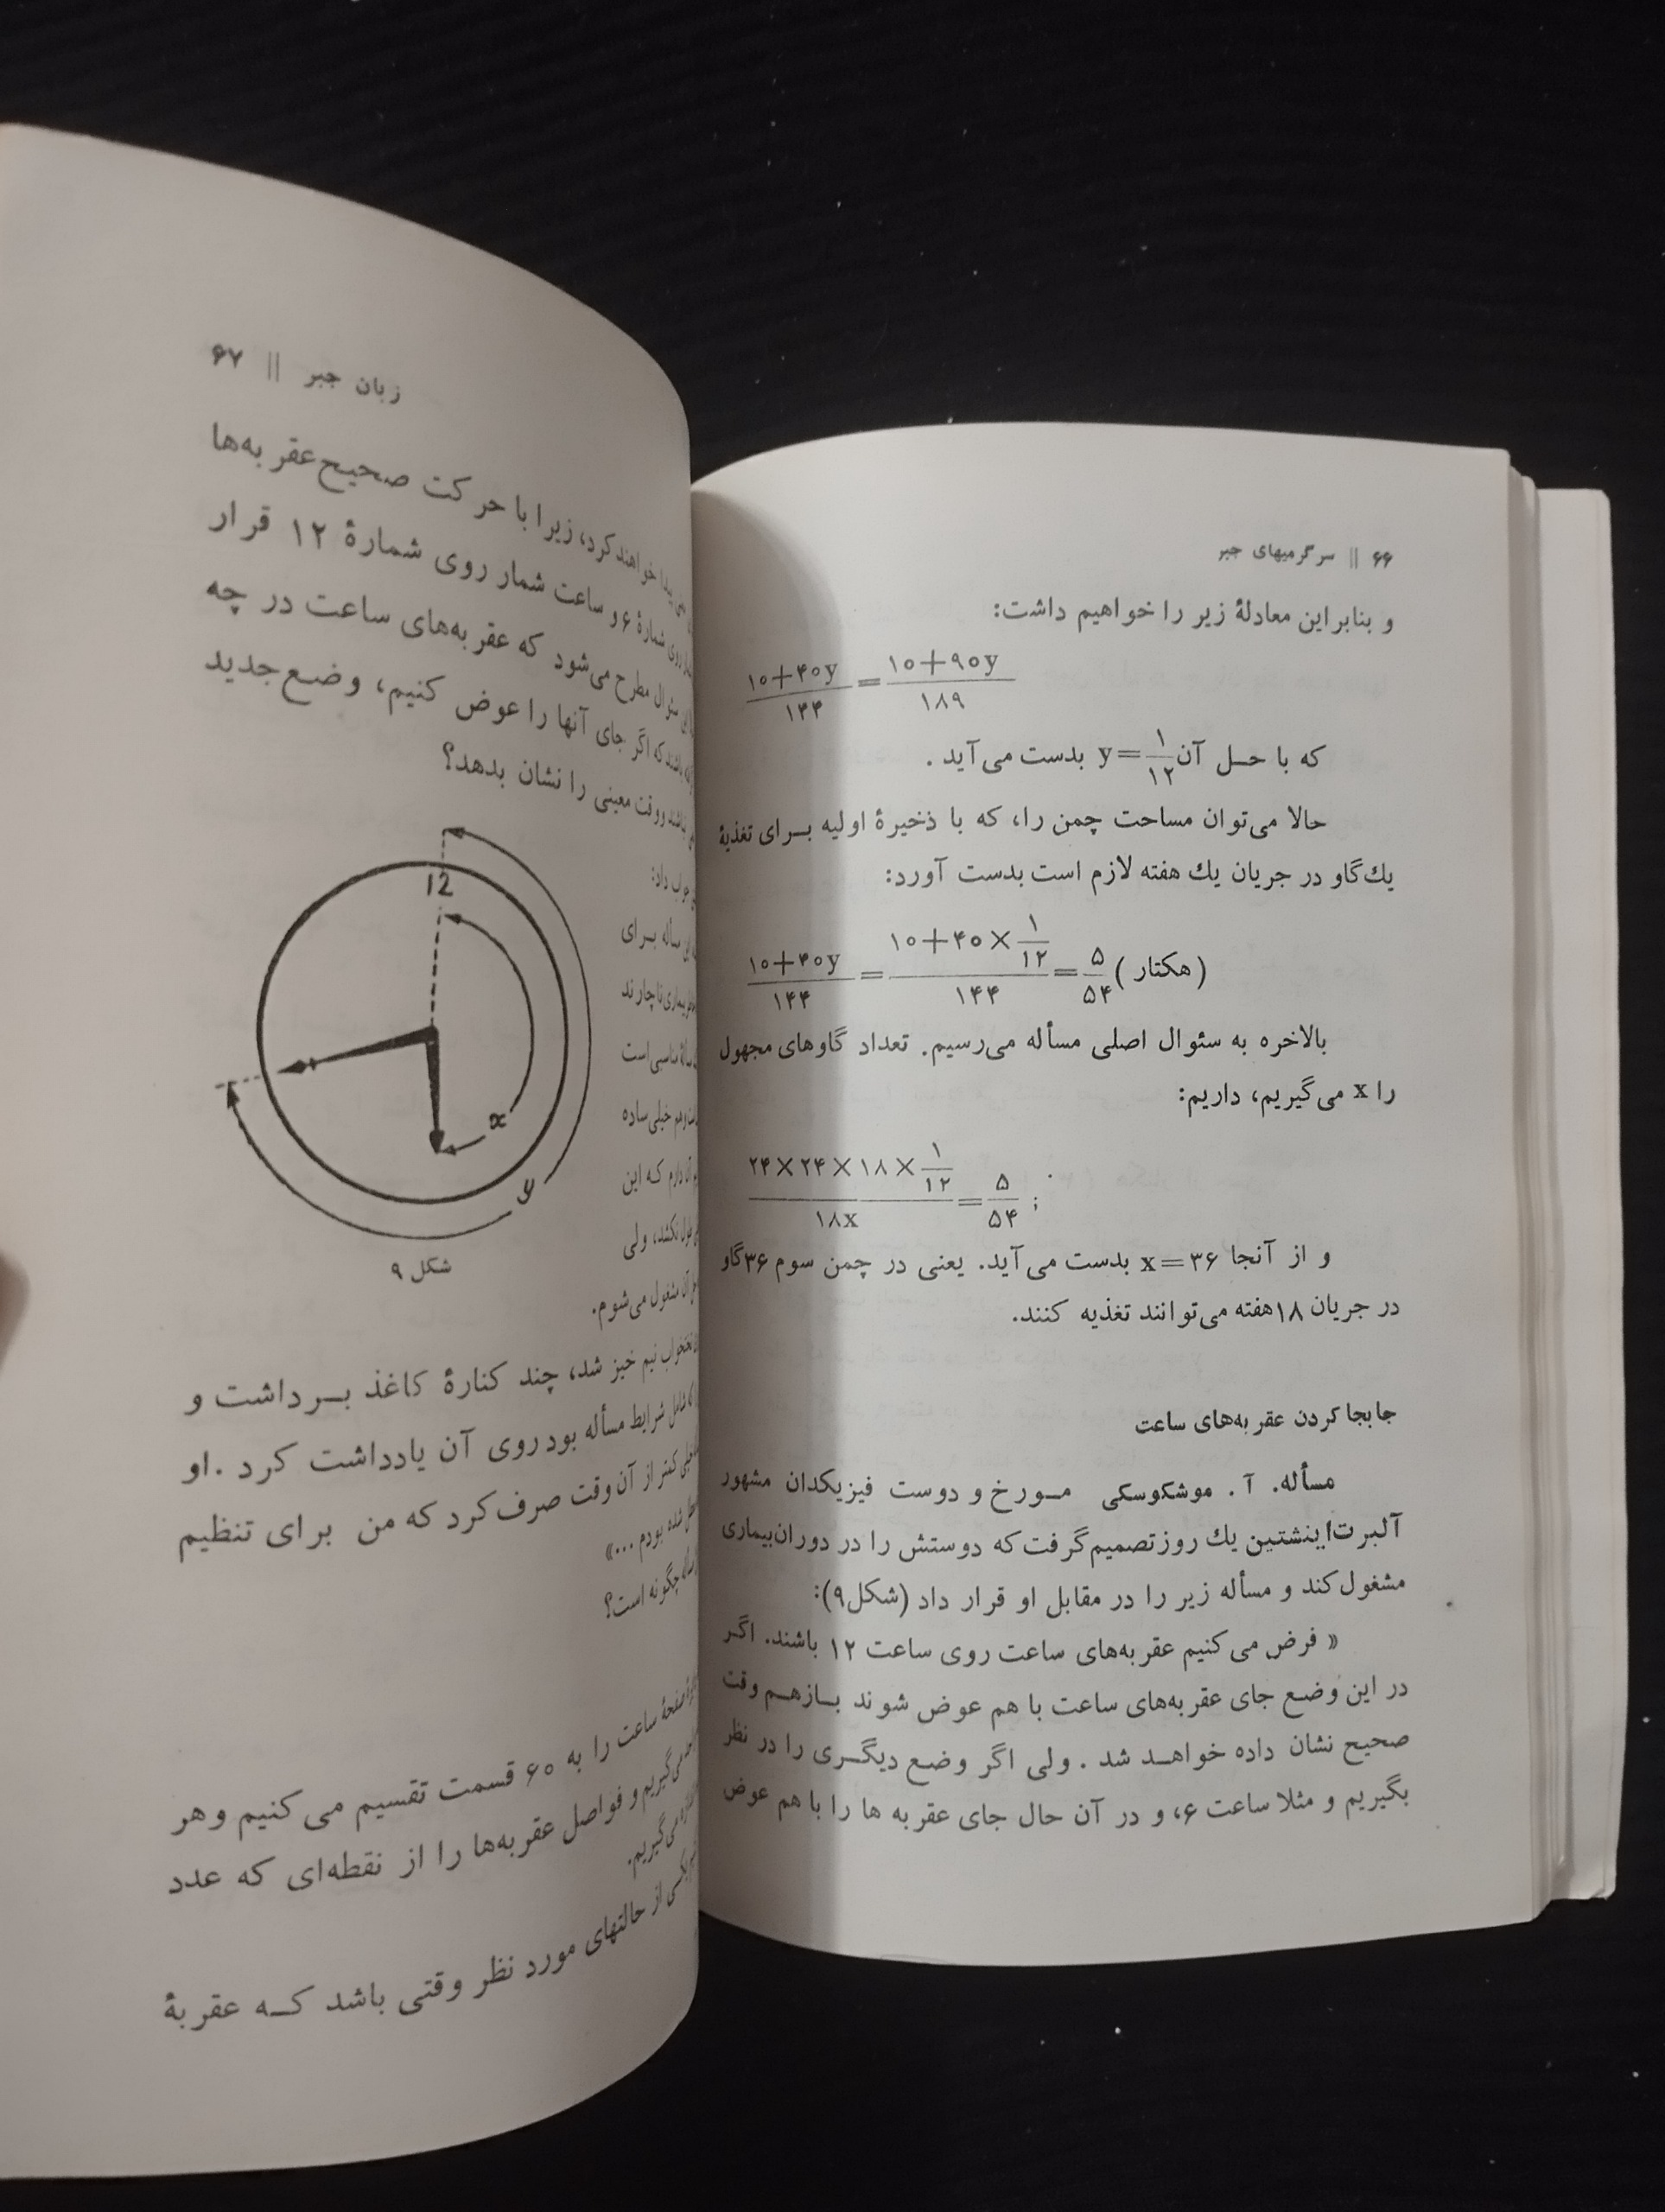 ۶۶ || سرگرمیهای جبر
و بنابراین معادلهٔ زیر را خواهیم داشت:
(۱۰+۴۰y)/۱۴۴ = (۱۰+۹۰y)/۱۸۹
که با حل آن y=۱/۱۲ بدست می‌آید.
حالا می‌توان مساحت چمن را، که با ذخیرهٔ اولیه برای تغذیهٔ
یك گاو در جریان یك هفته لازم است بدست آورد:
(۱۰+۴۰y)/۱۴۴ = (۱۰+۴۰×۱/۱۲)/۱۴۴ = ۵/۵۴ (هکتار)
بالاخره به سئوال اصلی مسأله می‌رسیم. تعداد گاوهای مجهول
را x می‌گیریم، داریم:
(۲۴×۲۴×۱۸×۱/۱۲)/۱۸x = ۵/۵۴ ;
و از آنجا x=۳۶ بدست می‌آید. یعنی در چمن سوم ۳۶گاو
در جریان ۱۸هفته می‌توانند تغذیه کنند.
جابجا کردن عقربه‌های ساعت
مسأله. آ. موشکوسکی مورخ و دوست فیزیکدان مشهور
آلبرت اینشتین یك روز تصمیم گرفت که دوستش را در دوران بیماری
مشغول کند و مسأله زیر را در مقابل او قرار داد (شکل۹):
« فرض می‌کنیم عقربه‌های ساعت روی ساعت ۱۲ باشند. اگر
در این وضع جای عقربه‌های ساعت با هم عوض شوند بازهم وقت
صحیح نشان داده خواهد شد. ولی اگر وضع دیگری را در نظر
بگیریم و مثلا ساعت ۶، و در آن حال جای عقربه ها را با هم عوض
زبان جبر || ۶۷
خواهند کرد، زیرا با حرکت صحیح عقربه‌ها
روی شمارهٔ ۶ و ساعت شمار روی شمارهٔ ۱۲ قرار
سئوال مطرح می‌شود که عقربه‌های ساعت در چه
باشند که اگر جای آنها را عوض کنیم، وضع جدید
وقت معینی را نشان بدهد؟
جواب داد:
مسأله برای
بیماری ناچارند
مناسبی است
هم خیلی ساده
آن دارم که این
طول نکشد، ولی
آن مشغول می‌شوم.
12
x
y
شکل ۹
نیم خیز شد، چند کنارهٔ کاغذ برداشت و
شرایط مسأله بود روی آن یادداشت کرد. او
کمتر از آن وقت صرف کرد که من برای تنظیم
شده بودم ...»
چگونه است؟
صفحهٔ ساعت را به ۶۰ قسمت تقسیم می‌کنیم و هر
می‌گیریم و فواصل عقربه‌ها را از نقطه‌ای که عدد
می‌گیریم.
یکی از حالتهای مورد نظر وقتی باشد که عقربهٔ